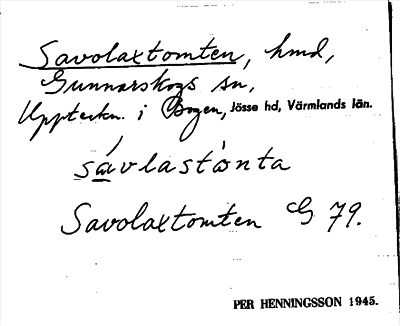 Savolaxtomten, hmd,
Gunnarskogs sn,
Uppteckn. i Bogen, Jösse hd, Värmlands län.
sávlastònta
Savolaxtomten G 79.
PER HENNINGSSON 1945.